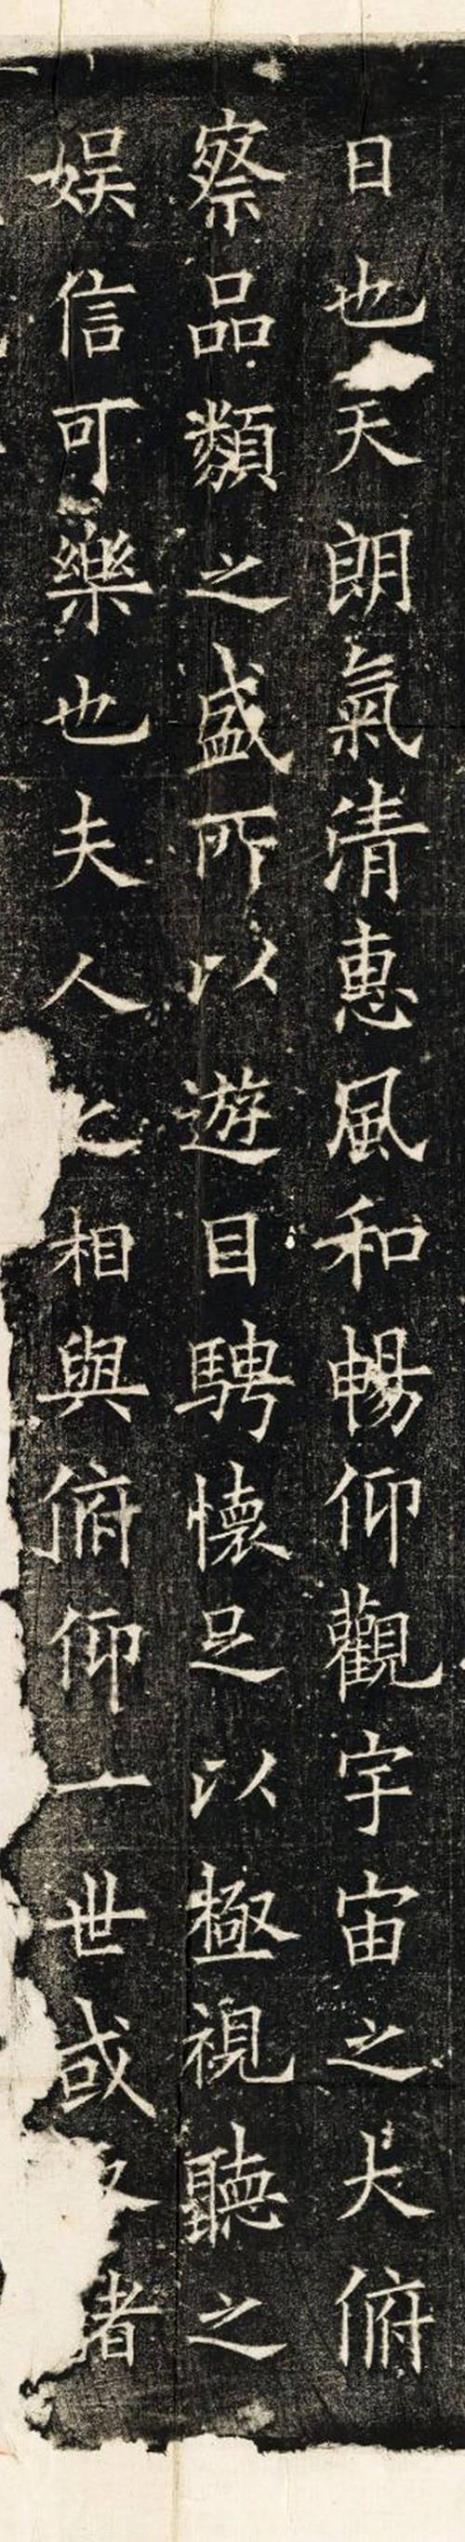 日也天朗氣清惠風和暢仰觀宇宙之大俯
察品類之盛所以遊目騁懷足以極視聽之
娱信可樂也夫人之相與俯仰一世或取者